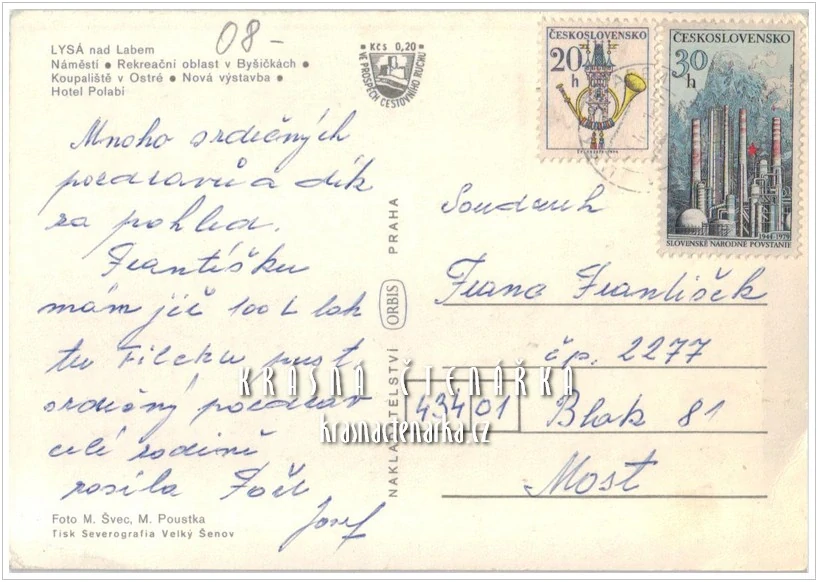 08-
LYSÁ nad Labem
Náměstí ● Rekreační oblast v Byšičkách ●
Koupaliště v Ostré ● Nová výstavba ●
Hotel Polabí
Kčs 0,20
VE PROSPĚCH CESTOVNÍHO RUCHU
ČESKOSLOVENSKO
20 h
ČESKOSLOVENSKO
30 h
1944-1979
SLOVENSKÉ NÁRODNÉ POVSTANIE
Mnoho srdečných
pozdravů a dík
za pohled.
Františku
mám již 100 L
tu
srdečný pozdrav
celé rodině
posílá
Josef
NAKLADATELSTVÍ ORBIS PRAHA
Soudruh
František
čp. 2277
434 01 Blok 81
Most
KRÁSNÁ ČTENÁŘKA
krasnactenarka.cz
Foto M. Švec, M. Poustka
Tisk Severografia Velký Šenov